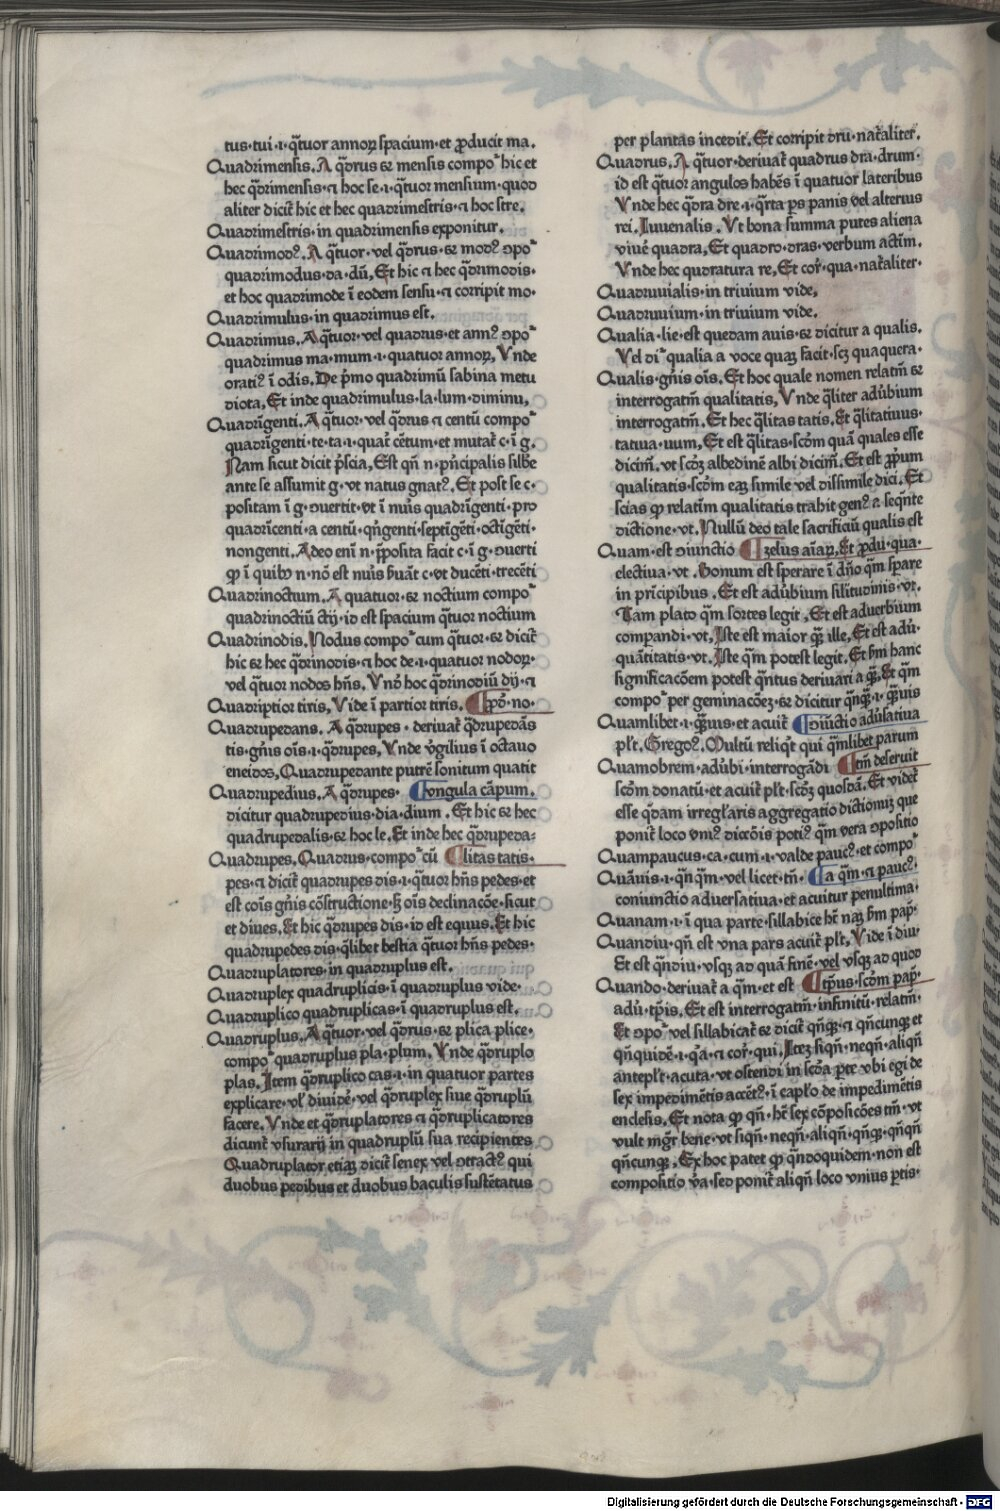 tus·tui·i·q̄tuor annoꝝ spacium·et ꝓducit ma.
Quadrimensis. A q̄drus ⁊ mensis compoͬ hic et
hec q̄drimensis·⁊ hoc se·i·q̄tuor mensium·quod
aliter dicit̃ hic et hec quadrimestris·⁊ hoc stre.
Quadrimestris·in quadrimensis exponitur.
Quadrimodꝰ. A q̄tuor·vel q̄drus·⁊ modꝰ ɔpoͬ
quadrimodus·da·dū, Et hic ⁊ hec q̄drimodis·
et hoc quadrimode ī eodem sensu·⁊ corripit mo·
Quadrimulus·in quadrimus est.
Quadrimus. A q̄tuor·vel quadrus·et annꝰ ɔpoͬ
quadrimus ma·mum·i·quatuor annoꝝ, Vnde
oratiꝰ ī odis. De p̄mo quadrimū sabina metu
diota, Et inde quadrimulus·la·lum·diminu,
Quadrīgenti. A q̄tuor·vel q̄drus ⁊ centū compoͬ
quadrīgenti·te·ta·i·quat̃ cētum·et mutat̃ c·ī g.
Nam sicut dicit p̄scia, Est qn̄ n·pn̄cipalis sillbe
ante se assumit g·vt natus gnatꝰ. Et post se c·
positam ī g·ɔuertit·vt ī nuīs quadrīgenti·pro
quadrīcenti·a centū·qn̄genti·septīgēti·octīgēti·
nongenti. Adeo eni n·p̄posita facit c·ī g·ɔuerti
ꝙ ī quibꝰ n·nō est nuīs ẜuāt c·vt ducēti·trecēti
Quadrinoctium. A quatuor·⁊ noctium compoͬ
quadrinoctiū ctij·id est spacium q̄tuor noctium
Quadrinodis. Nodus compoͬ cum q̄tuor·⁊ dicit̃
hic ⁊ hec q̄drinodis·⁊ hoc de·i·quatuor nodoꝝ·
vel q̄tuor nodos hn̄s. Vnō hoc q̄drinodiū dij·⁊
Quadriptior tiris, Vide ī partior tiris. ¶pō·no·
Quadrupedans. A q̄drupes·deriuat̃ q̄drupedās
tis·gn̄is oīs·i·q̄drupes, Vnde v̄gilius ī octauo
eneidos, Quadrupedante putrē sonitum quatit
Quadrupedius. A q̄drupes· ¶vngula cāpum.
dicitur quadrupedius·dia·dium. Et hic ⁊ hec
quadrupedalis·⁊ hoc le. Et inde hec q̄drupeda-
Quadrupes. Quadrus·compoͬ cū ¶litas tatis·
pes·⁊ dicit̃ quadrupes dis·i·q̄tuor hn̄s pedes·et
est cois gn̄is cōstructione·ẜ oīs declinacōe·sicut
et diues, Et hic q̄drupes dis·id est equus. Et hic
quadrupedes dis·q̄libet bestia q̄tuor hn̄s pedes·
Quadruplatores·in quadruplus est.
Quadruplex quadruplicis·ī quadruplus vide·
Quadruplico quadruplicas·ī quadruplus est.
Quadruplus. A q̄tuor·vel q̄drus·⁊ plica plice·
compoͬ quadruplus pla·plum. Vnde q̄druplo
plas. Item q̄druplico cas·i·in quatuor partes
explicare·vl̄ diuidē·vel q̄druplex siue q̄druplū
facere. Vnde et q̄druplatores ⁊ q̄druplicatores
dicunt̃ vsurarij in quadruplū sua recipientes
Quadruplator etiā dicit̃ senex vel ɔtractꝰ qui
duobus pedibus et duobus baculis sustētatus
per plantas incedit. Et corripit dru·nat̃aliter.
Quadrus, A q̄tuor·deriuat̃ quadrus dra·drum·
id est q̄tuor angulos habēs ī quatuor lateribus
Vnde hec q̄dra dre·i·q̄rta ps panis vel alterius
rei. Iuuenalis. Vt bona summa putes aliena
viuē quadra, Et quadro·dras·verbum actim̄.
Vnde hec qudratura re, Et cor̃·qua·nat̃aliter·
Quadruuialis·in triuium vide,
Quadruuium·in triuium vide.
Qualia·lie·est quedam auis·⁊ dicitur a qualis.
Vel diͬ qualia a voce quaꝫ facit·scꝫ quaquera·
Qualis·gn̄is oīs. Et hoc quale nomen relatm̄ ⁊
interrogatm̄ qualitatis, Vnde q̄liter adūbium
interrogatm̄. Et hec q̄litas tatis. Et q̄litatiuus·
tatiua·uum, Et est q̄litas·scōm quā quales esse
dicim̄·vt scōꝫ albedinē albi dicim̄. Et est ꝓpum
qualitatis·scōm eaꝫ simile vel dissimile dici. Et
scias ꝙ relatm̄ qualitatis trahit genꝰ a seqn̄te
dictione·vt. Nullū deo tale sacrificiū qualis est
Quam·est ɔiunctio ¶zelus aīaꝝ, Et ꝓdu·qua·
electiua·vt. Bonum est sperare ī dn̄o qm̄ spare
in prīcipibus. Et est adūbium silitudinis·vt.
Tam plato qm̄ sortes legit, Et est aduerbium
compandi·vt, Iste est maior qͣꝫ ille, Et est adū·
quātitatis·vt. Iste qm̄ potest legit. Et ẜm hanc
significacōem potest q̄ntus deriuari a qͣꝫ. Et qm̄
compoͬ per geminacōeꝫ·⁊ dicitur qn̄qͣꝫ·i·qͣꝫuis
Quamlibet·i·qͣꝫuis·et acuit̃ ¶ɔiūctio adūsatiua
pl̄t. Gregoꝰ. Multū reliqt̃ qui qm̄libet parum
Quamobrem·adūbi·interrogādi ¶tm̄ deseruit
scōm donatū·et acuit̃ pl̄t·scōꝫ quosdā. Et videt̃
esse q̄dam irregl̄aris aggregatio dictionū que
ponit̃ loco vniꝰ dicōis potiꝰ qm̄ vera ɔpositio
Quampaucus·ca·cum·i·valde paucꝰ·et compoͬ
Quāuis·i·qn̄qm̄·vel licet·tn̄· ¶a qm̄·⁊ paucꝰ·
coniunctio aduersatiua·et acuitur penultima·
Quanam·i·ī qua parte·sillabice hꝫ naꝫ ẜm pap̄·
Quandiu·qn̄ est vna pars acuit̃ pl̄t, Vide ī diu·
Et est qn̄diu·vsqꝫ ad quā finē·vel vsqꝫ ad quod
Quando·deriuat̃ a qm̄·et est ¶tp̄us·scōm pap̄·
adū·tp̄is. Et est interrogatm̄·infinitū·relatm̄·
Et ɔpoͬ vel sillabicat̃ ⁊ dicit̃ qn̄qꝫ·⁊ qn̄cunqꝫ et
qn̄quidē·i·qͣa·⁊ cor̃·qui. Iteꝫ siqn̄·neqn̄·aliqn̄
antepl̄t·acuta·vt ostendi in scōa pte vbi egi de
sex impedimētis accētꝰ·ī caplo de impedimētis
enclesis. Et nota ꝙ qn̄·hꝫ sex cōposicōes tm̄·vt
vult mgr̄ bene·vt siqn̄·neqn̄·aliqn̄·qn̄qꝫ·qn̄qn̄
qn̄cunqꝫ. Ex hoc patet ꝙ qn̄doquidem·non est
compositio v̄a·sed ponit̃ aliqn̄ loco vnius ptis·
Digitalisierung gefördert durch die Deutsche Forschungsgemeinschaft - DFG